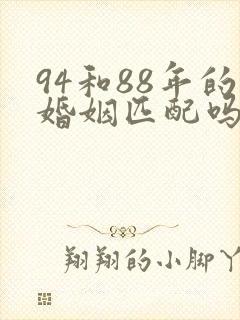 94和88年的
婚姻匹配吗
翔翔的小脚丫